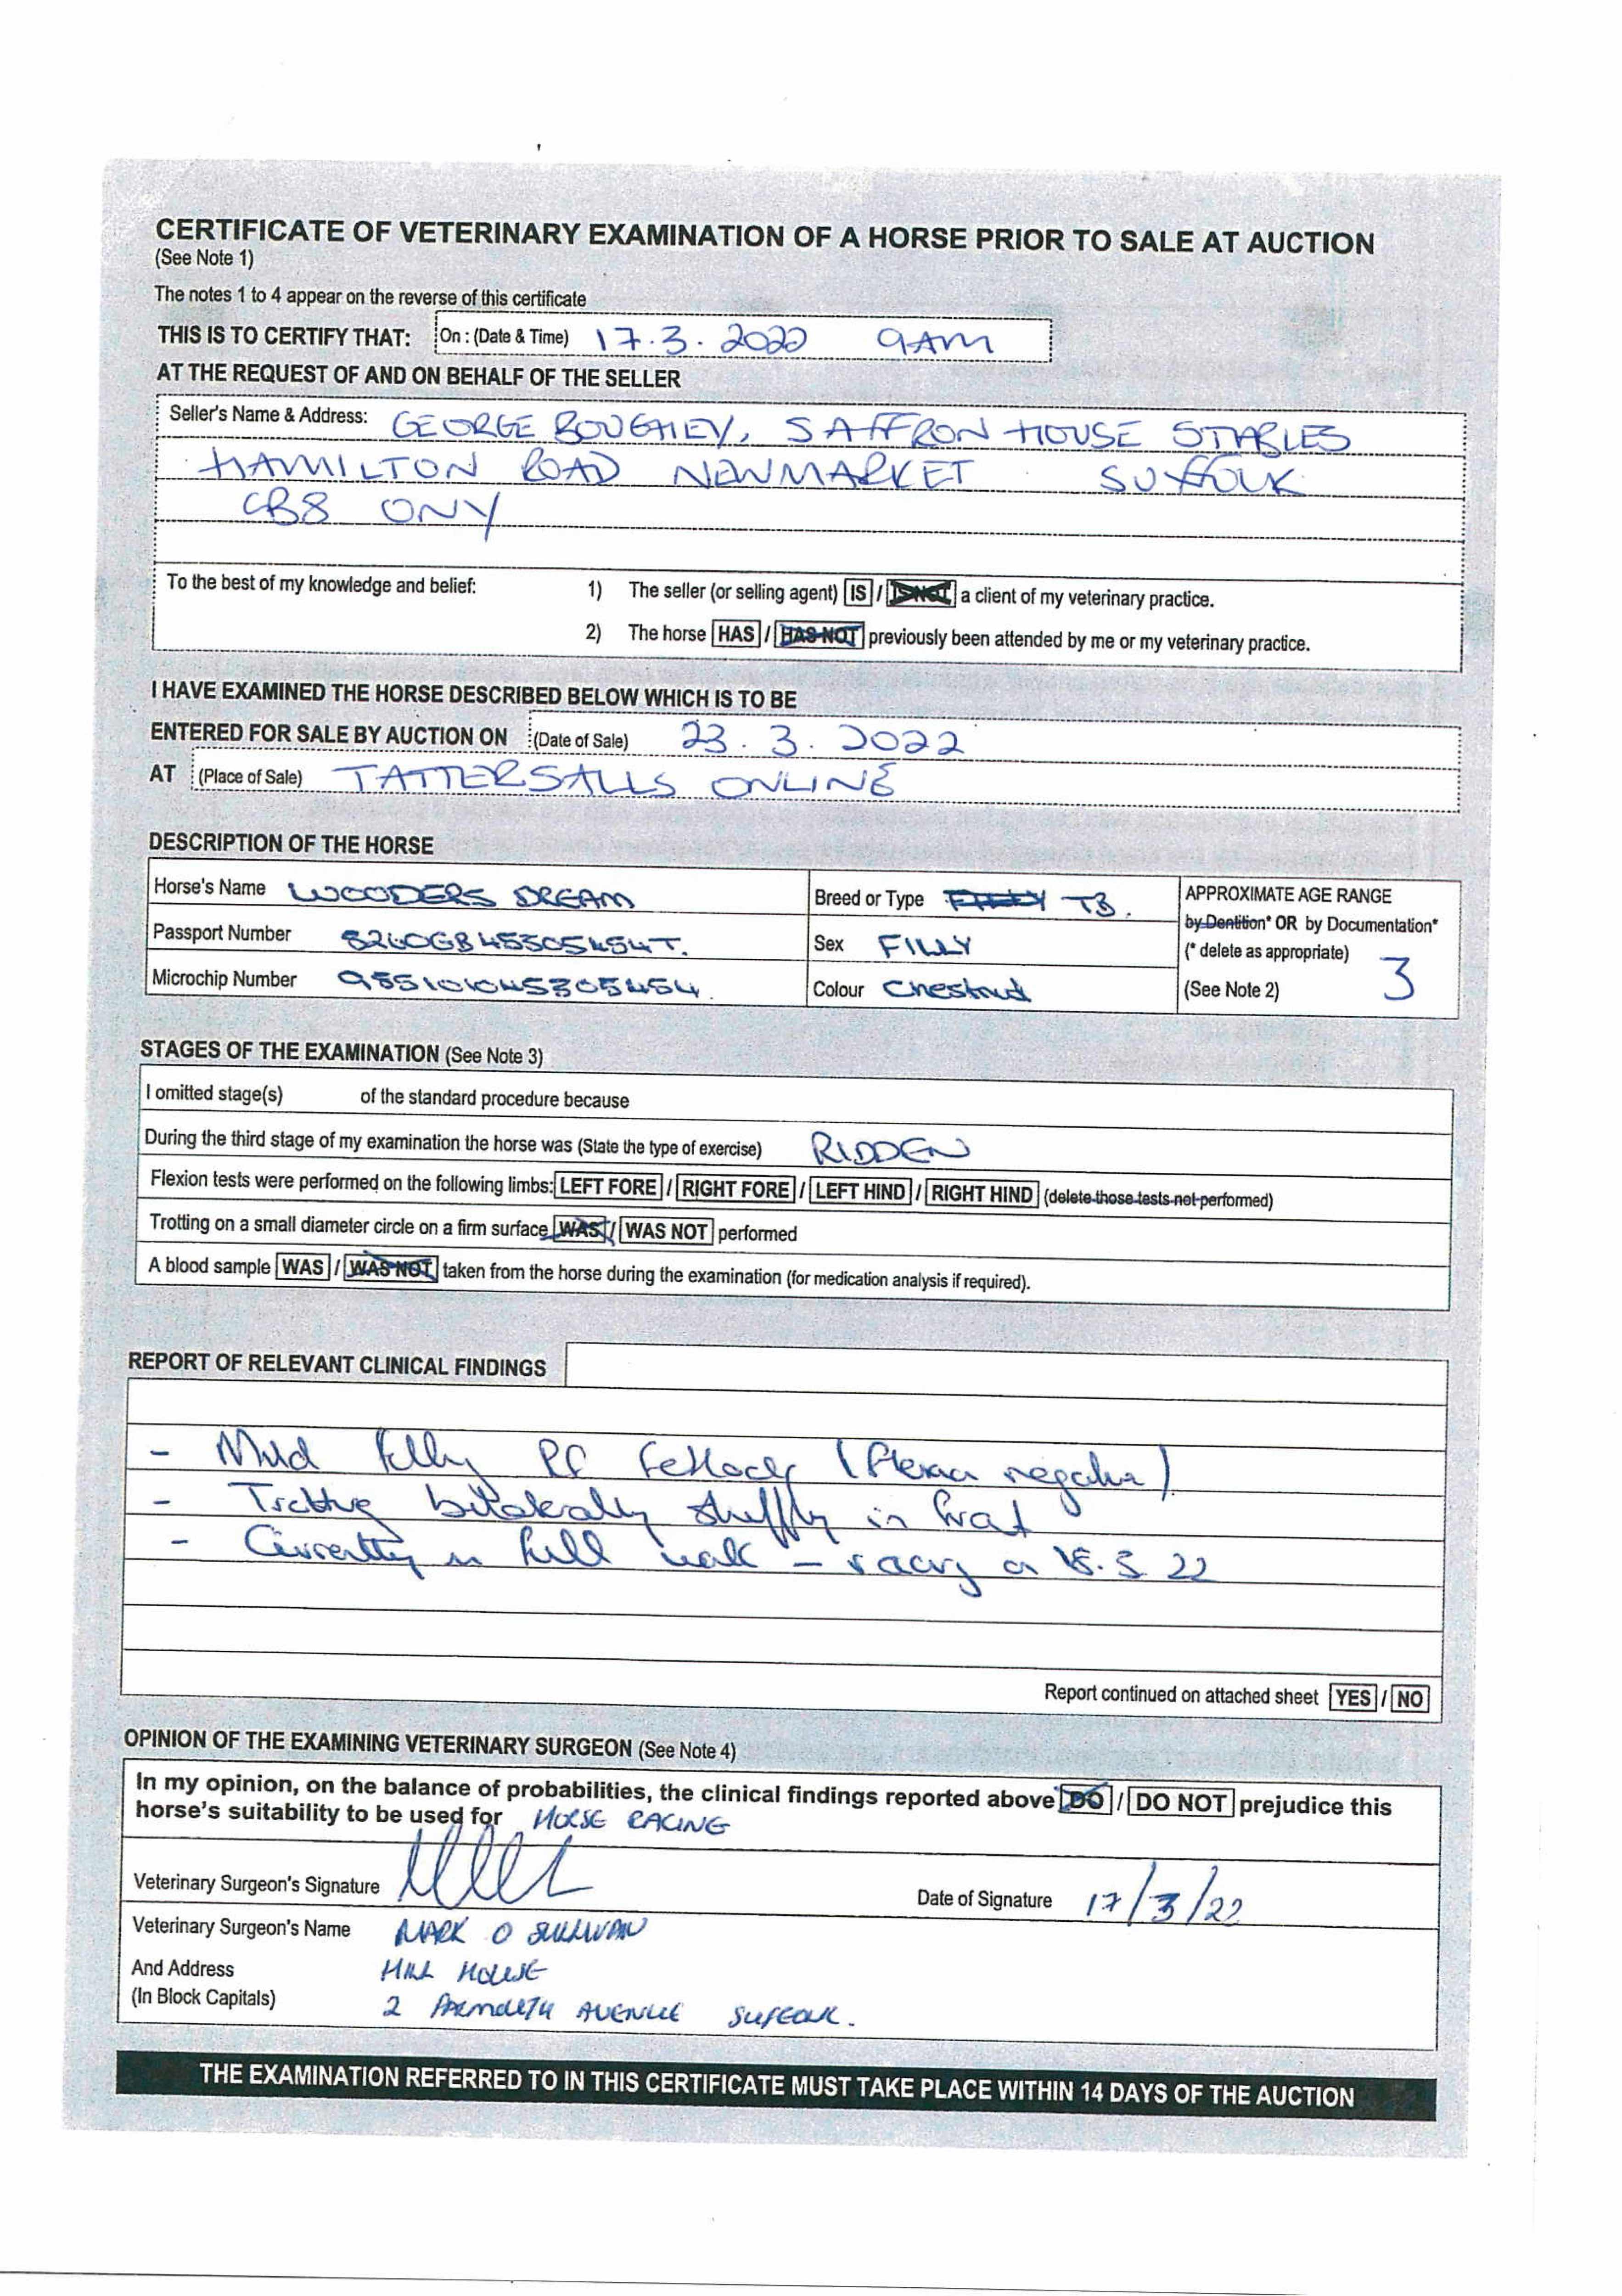 CERTIFICATE OF VETERINARY EXAMINATION OF A HORSE PRIOR TO SALE AT AUCTION
(See Note 1)
The notes 1 to 4 appear on the reverse of this certificate
THIS IS TO CERTIFY THAT: On : (Date & Time) 17.3.2022 9AM
AT THE REQUEST OF AND ON BEHALF OF THE SELLER
Seller's Name & Address: GEORGE BOUGHEY, SAFFRON HOUSE STABLES
HAMILTON ROAD NEWMARKET SUFFOLK
CB8 0NY
To the best of my knowledge and belief: 1) The seller (or selling agent) IS / IS NOT a client of my veterinary practice.
2) The horse HAS / HAS NOT previously been attended by me or my veterinary practice.
I HAVE EXAMINED THE HORSE DESCRIBED BELOW WHICH IS TO BE
ENTERED FOR SALE BY AUCTION ON (Date of Sale) 23.3.2022
AT (Place of Sale) TATTERSALLS ONLINE
DESCRIPTION OF THE HORSE
Horse's Name WOODERS DREAM Breed or Type FILLY TB. APPROXIMATE AGE RANGE
by Dentition* OR by Documentation*
Passport Number 826OGB45305454T. Sex FILLY (* delete as appropriate) 3
Microchip Number 985101045305454 Colour Chestnut (See Note 2)
STAGES OF THE EXAMINATION (See Note 3)
I omitted stage(s) of the standard procedure because
During the third stage of my examination the horse was (State the type of exercise) RIDDEN
Flexion tests were performed on the following limbs: LEFT FORE / RIGHT FORE / LEFT HIND / RIGHT HIND (delete those tests not performed)
Trotting on a small diameter circle on a firm surface WAS / WAS NOT performed
A blood sample WAS / WAS NOT taken from the horse during the examination (for medication analysis if required).
REPORT OF RELEVANT CLINICAL FINDINGS
- Mild filling fetlock (Flexion negative)
- Trotting bilaterally shuffly in front
- Currently in full work - racing on 18.3.22
Report continued on attached sheet YES / NO
OPINION OF THE EXAMINING VETERINARY SURGEON (See Note 4)
In my opinion, on the balance of probabilities, the clinical findings reported above DO / DO NOT prejudice this
horse's suitability to be used for HORSE RACING
Veterinary Surgeon's Signature Date of Signature 17/3/22
Veterinary Surgeon's Name MARK O SULLIVAN
And Address HILL HOUSE
(In Block Capitals) 2 AVENUE SUFFOLK.
THE EXAMINATION REFERRED TO IN THIS CERTIFICATE MUST TAKE PLACE WITHIN 14 DAYS OF THE AUCTION